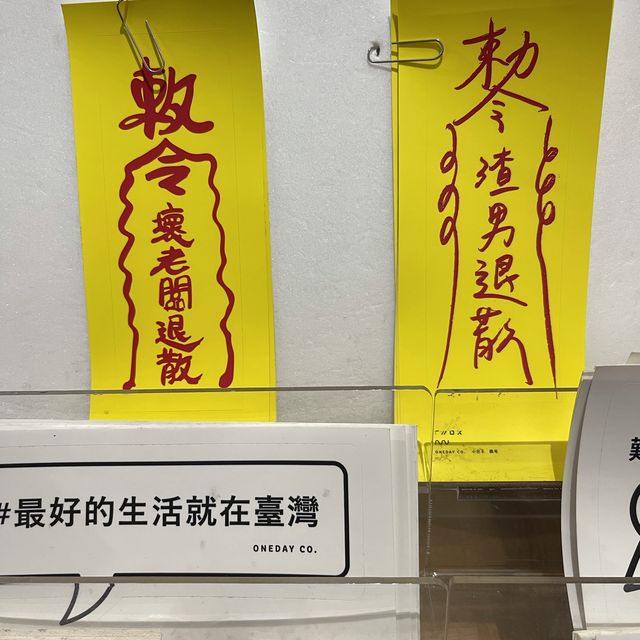 敕令
壞老闆退散
勅令
渣男退散
ONEDAY CO.
#最好的生活就在臺灣
ONEDAY CO.
難